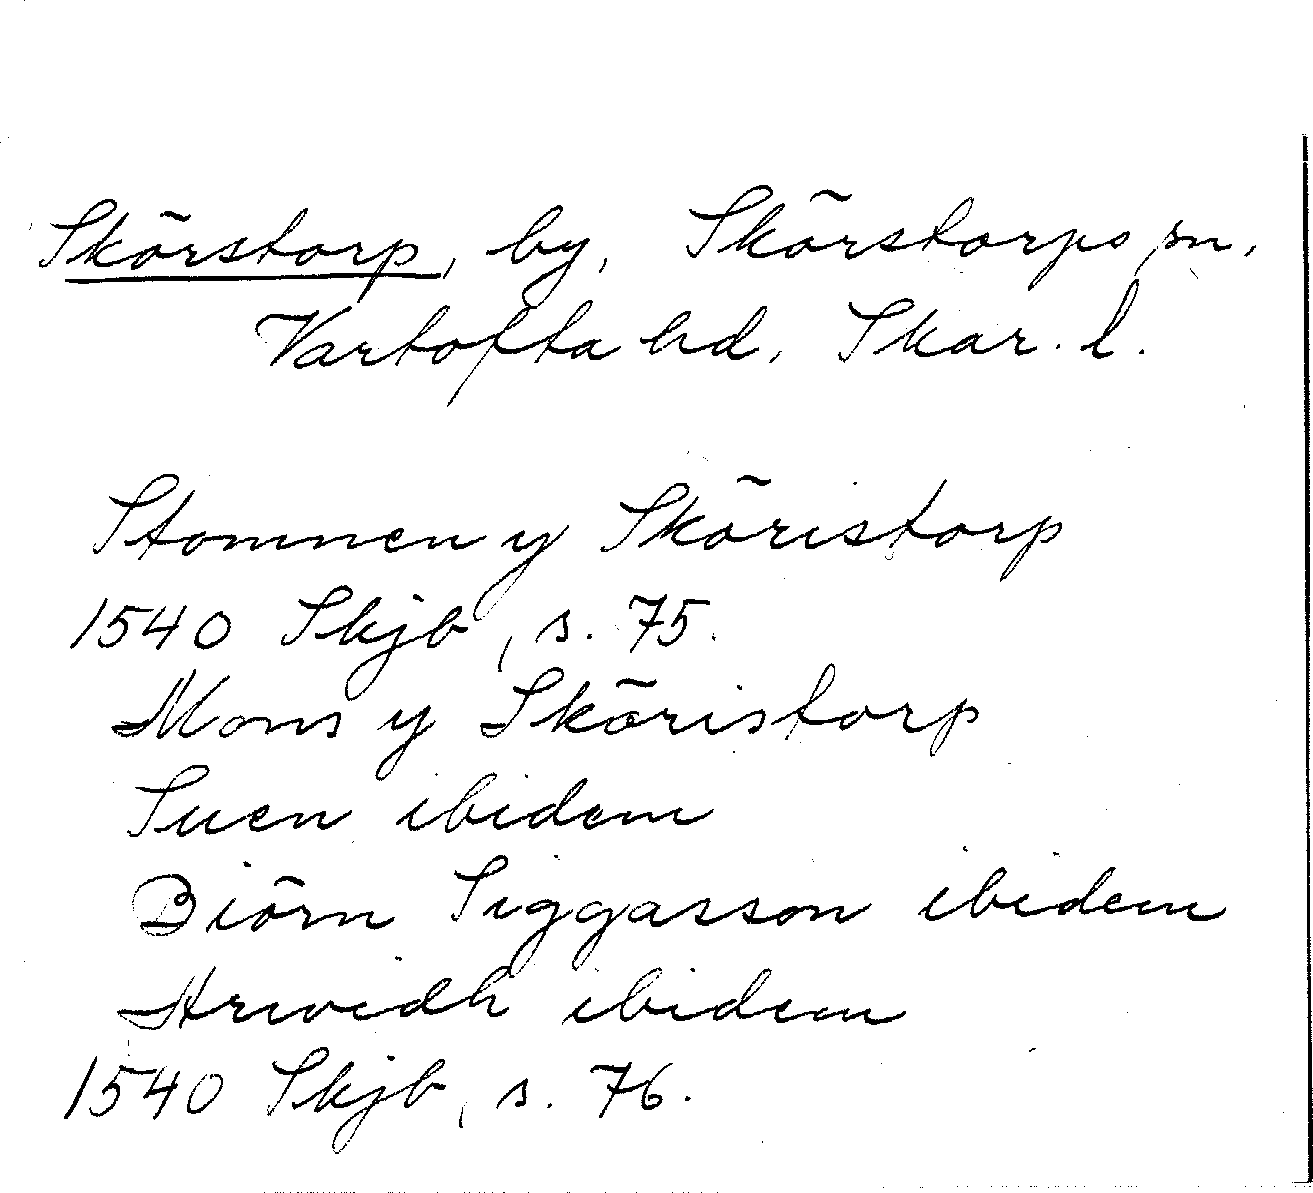 Skörstorp, by, Skörstorps sn,
Vartofta hd, Skar. l.
Stommen y Sköristorp
1540 Skjb, s. 75.
Mons y Sköristorp
Suen ibidem
Biörn Siggasson ibidem
Arwidh ibidem
1540 Skjb, s. 76.